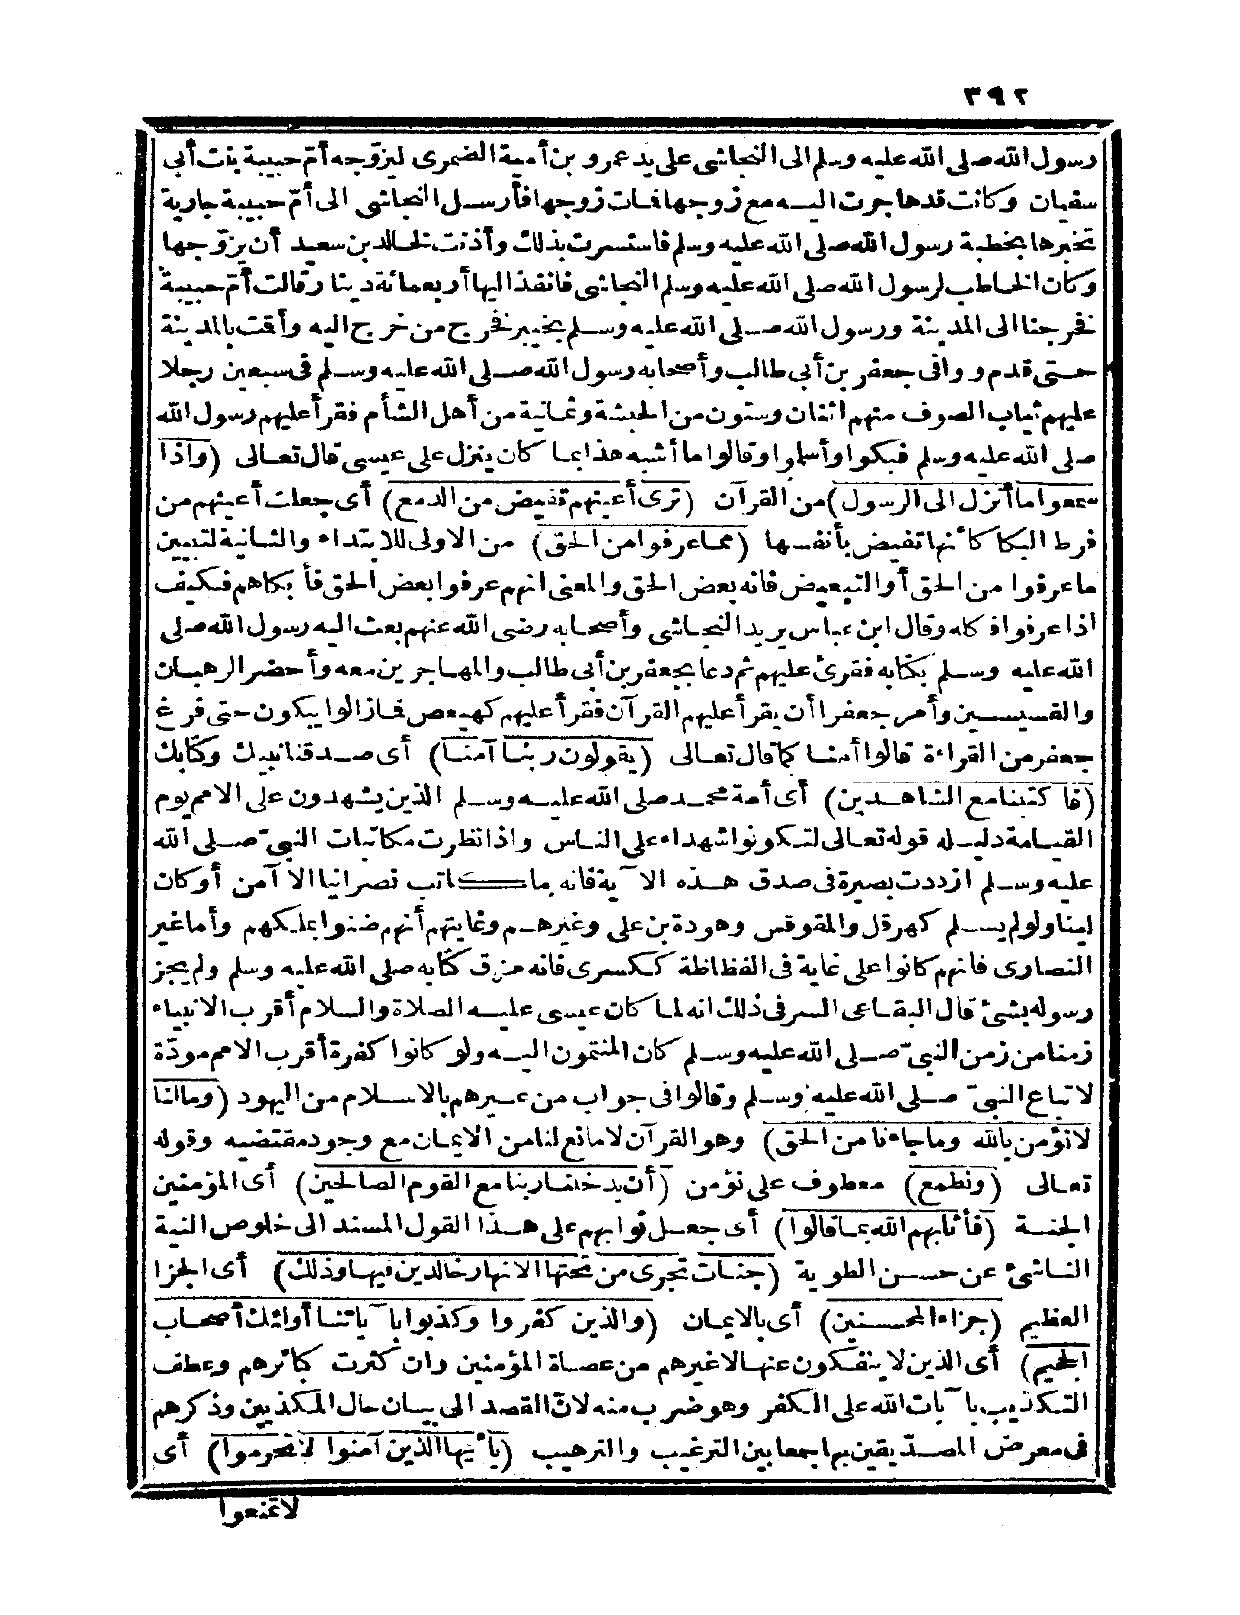 ٣٩٢
رسول الله صلى الله عليه وسلم الى النجاشى على يد عمرو بن أمية الضمرى ليزوجه أم حبيبة بنت أبى
سفيان وكانت قد هاجرت اليه مع زوجها فمات زوجها فأرسل النجاشى الى أم حبيبة جارية
تخبرها بخطبة رسول الله صلى الله عليه وسلم فاستسرت بذلك وأذنت لخالد بن سعيد أن يزوجها
وكان الخاطب لرسول الله صلى الله عليه وسلم النجاشى فانفذ اليها أربعمائة دينار قالت أم حبيبة
فخرجنا الى المدينة ورسول الله صلى الله عليه وسلم بخيبر فخرج من خرج اليه وأقمت بالمدينة
حتى قدم ووافى جعفر بن أبى طالب وأصحابه رسول الله صلى الله عليه وسلم فى سبعين رجلا
عليهم ثياب الصوف منهم اثنان وستون من الحبشة وثمانية من أهل الشأم فقرأ عليهم رسول الله
صلى الله عليه وسلم فبكوا وأسلموا وقالوا ما أشبه هذا بما كان ينزل على عيسى قال تعالى (واذا
سمعوا ما أنزل الى الرسول) من القرآن (ترى أعينهم تفيض من الدمع) أى جعلت أعينهم من
فرط البكا كأنها تفيض بأنفسها (مما عرفوا من الحق) من الاولى للابتداء والثانية لتبيين
ما عرفوا من الحق أو التبعيض فانه بعض الحق والمعنى انهم عرفوا بعض الحق فأبكاهم فكيف
اذا عرفوا كله وقال ابن عباس يريد النجاشى وأصحابه رضى الله عنهم بعث اليه رسول الله صلى
الله عليه وسلم بكتابه فقرئ عليهم ثم دعا بجعفر بن أبى طالب والمهاجرين معه وأحضر الرهبان
والقسيسين وأمر جعفرا أن يقرأ عليهم القرآن فقرأ عليهم كهيعص فما زالوا يبكون حتى فرغ
جعفر من القراءة قالوا أمنا كما قال تعالى (يقولون ربنا آمنا) أى صدقنا نبيك وكتابك
(فاكتبنا مع الشاهدين) أى أمة محمد صلى الله عليه وسلم الذين يشهدون على الامم يوم
القيامة دليله قوله تعالى لتكونوا شهداء على الناس واذا نظرت مكاتبات النبى صلى الله
عليه وسلم ازددت بصيرة فى صدق هذه الآية فانه ما كاتب نصرانيا الا آمن أو كان
لينا ولو لم يسلم كهرقل والمقوقس وهودة بن على وغيرهم وغايتهم أنهم ضنوا بملكهم وأما غير
النصارى فانهم كانوا على غاية فى الفظاظة ككسرى فانه مزق كتابه صلى الله عليه وسلم ولم يجز
رسوله بشئ قال البقاعى السر فى ذلك انه لما كان عيسى عليه الصلاة والسلام أقرب الانبياء
زمنا من زمن النبى صلى الله عليه وسلم كان المنتمون اليه ولو كانوا كفرة أقرب الامم مودة
لاتباع النبى صلى الله عليه وسلم وقالوا فى جواب من عيرهم بالاسلام من اليهود (وما لنا
لا نؤمن بالله وما جاءنا من الحق) وهو القرآن لا مانع لنا من الايمان مع وجود مقتضيه وقوله
تعالى (ونطمع) معطوف على نؤمن (أن يدخلنا ربنا مع القوم الصالحين) أى المؤمنين
الجنة (فأثابهم الله بما قالوا) أى جعل ثوابهم على هذا القول المسند الى خلوص النية
الناشئ عن حسن الطوية (جنات تجرى من تحتها الانهار خالدين فيها وذلك) أى الجزا
العظيم (جزاء المحسنين) أى بالايمان (والذين كفروا وكذبوا بآياتنا أولئك أصحاب
الجحيم) أى الذين لا ينفكون عنها لا غيرهم من عصاة المؤمنين وان كثرت كبائرهم وعطف
التكذيب بآيات الله على الكفر وهو ضرب منه لان القصد الى بيان حال المكذبين وذكرهم
فى معرض المصدقين بها جمعا بين الترغيب والترهيب (يأيها الذين آمنوا لا تحرموا) أى
لا تمنعوا